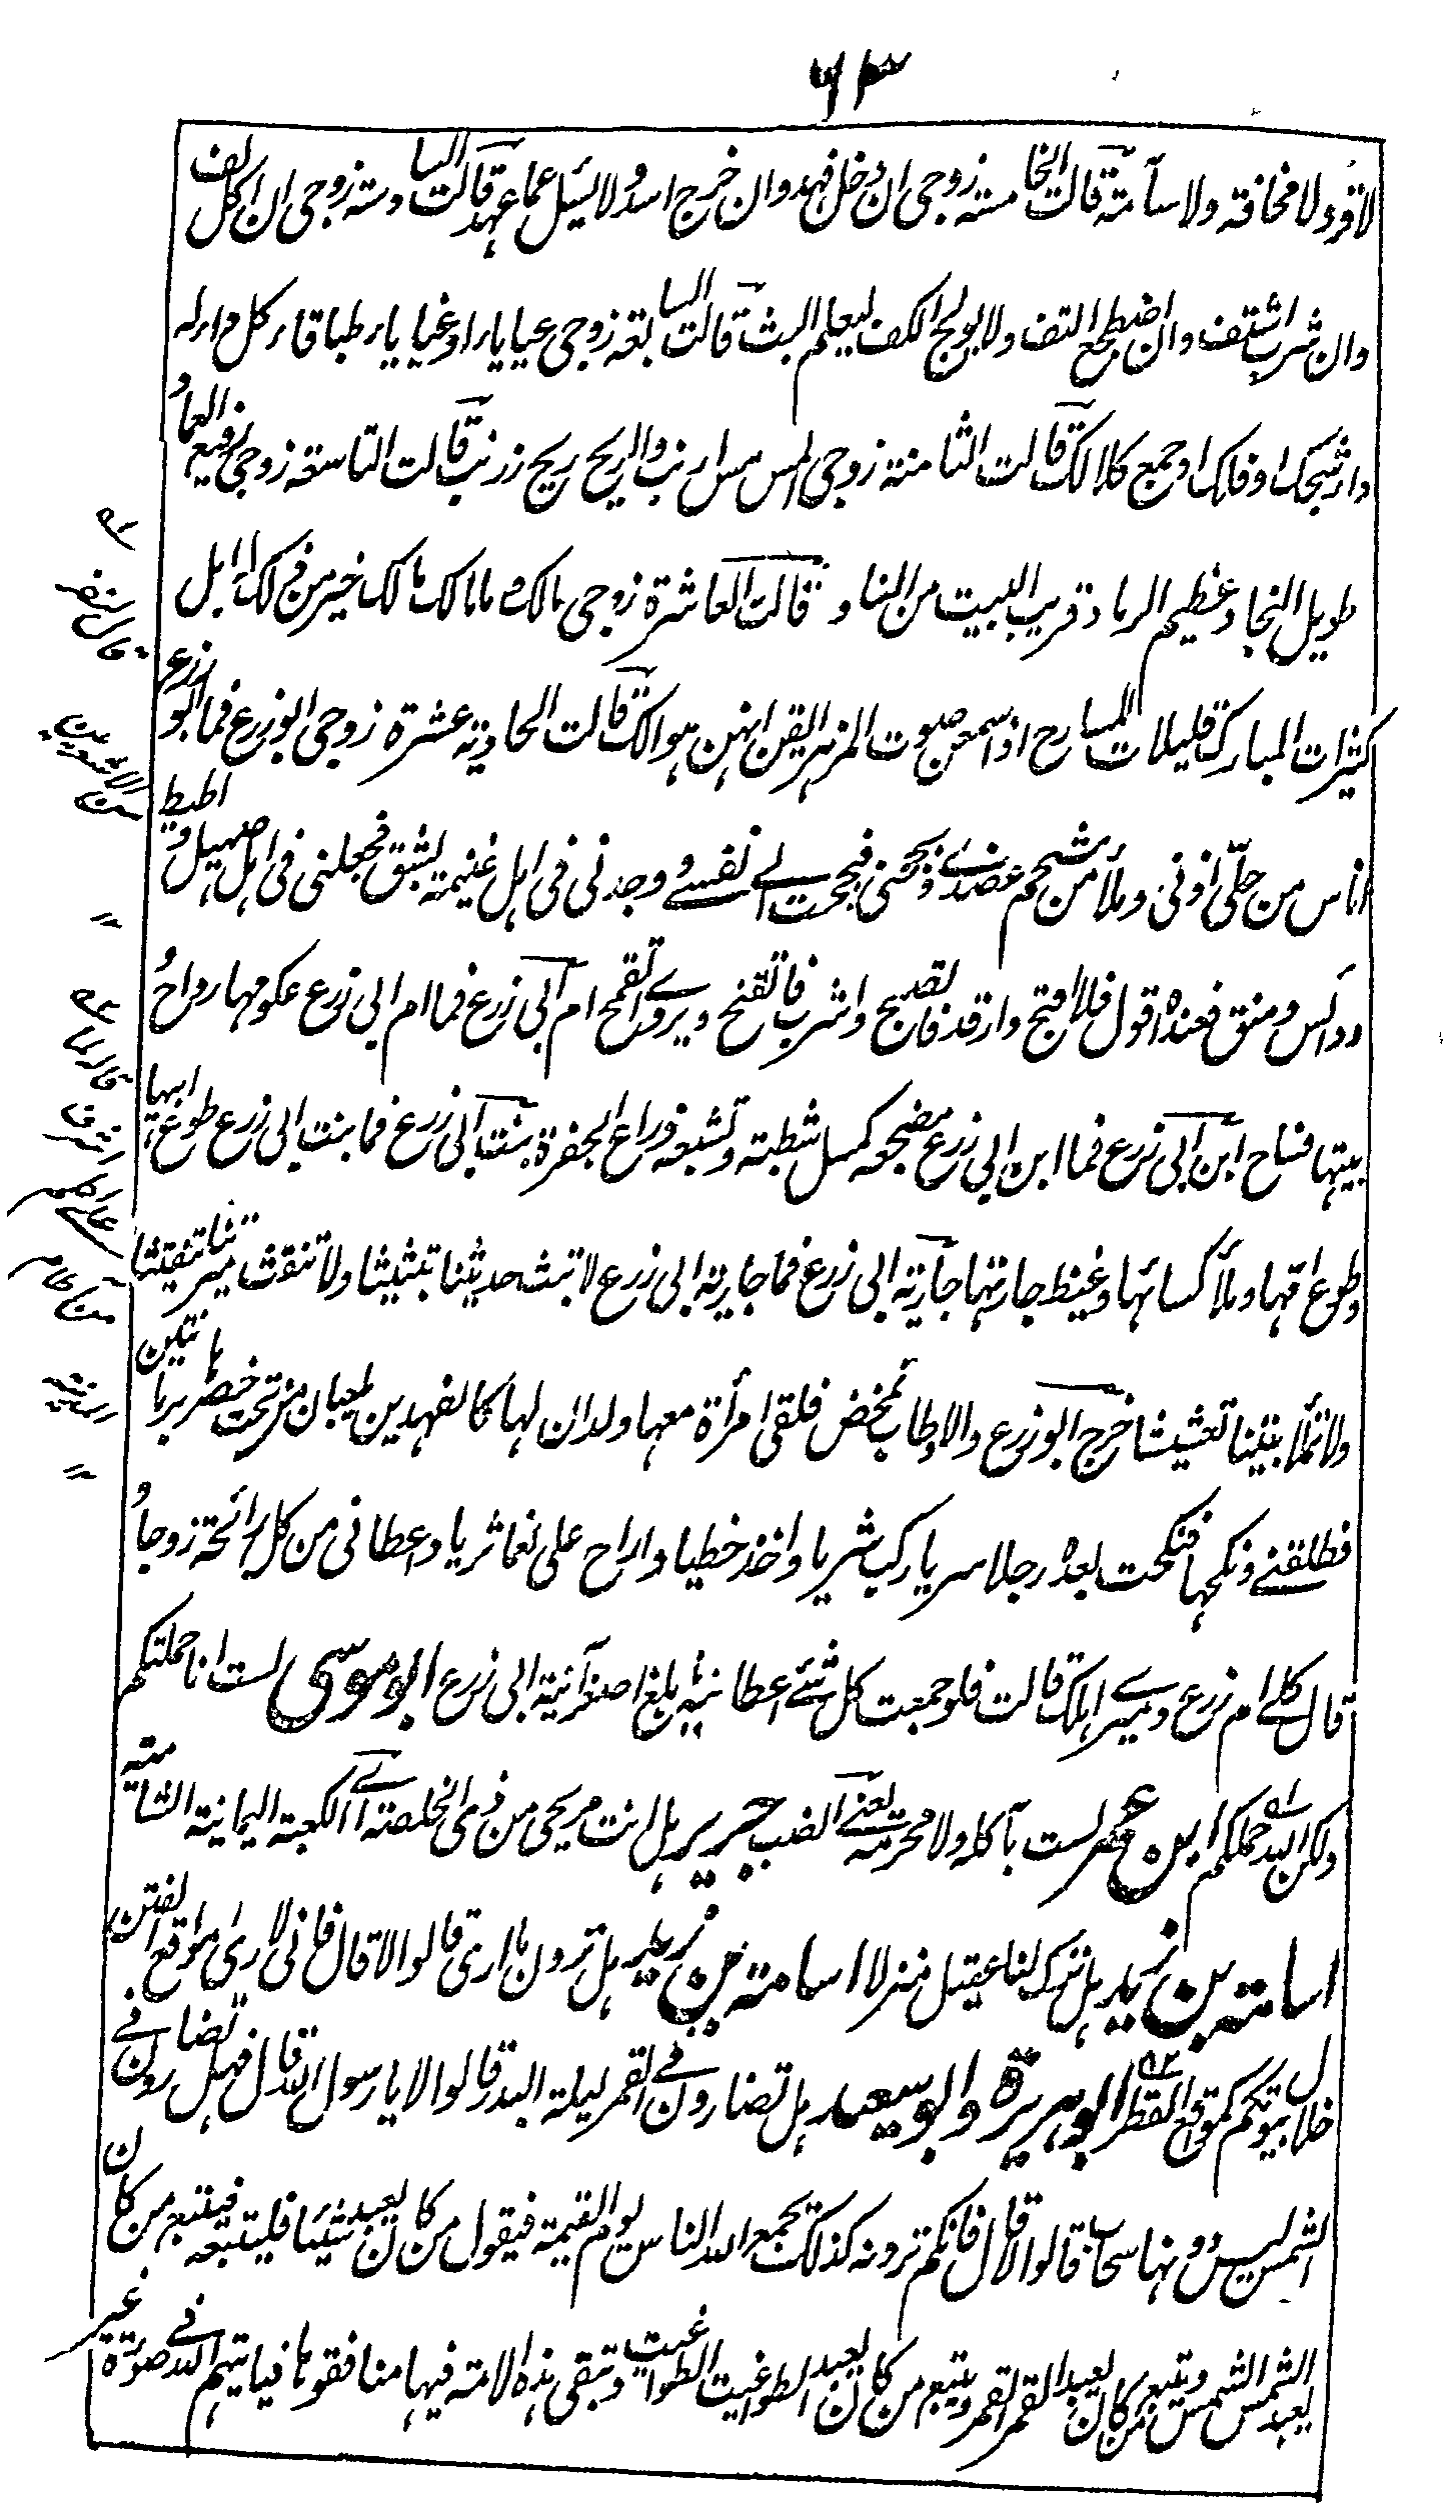 ٦٣
لا قر ولا مخافة ولا سآمة قالت الخامسة زوجی ان دخل فهد وان خرج اسد ولا یسئل عما عهد قالت السادسة زوجی ان اکل لف
وان شرب اشتف وان اضطجع التف ولا یولج الکف لیعلم البث قالت السابعة زوجی عیایاء او غیایاء طباقاء کل داء له
داء شجک او فلک او جمع کلا لک قالت الثامنة زوجی المس مس ارنب والریح ریح زرنب قالت التاسعة زوجی رفیع العماد
طویل النجاد عظیم الرماد قریب البیت من الناد قالت العاشرة زوجی مالک وما مالک مالک خیر من ذلک له ابل
کثیرات المبارک قلیلات المسارح اذا سمعن صوت المزهر ایقن انهن هوالک قالت الحادیة عشرة زوجی ابو زرع فما ابو زرع
اناس من حلی اذنی وملأ من شحم عضدی وبجحنی فبجحت الی نفسی وجدنی فی اهل غنیمة بشق فجعلنی فی اهل صهیل واطیط
ودائس ومنق فعنده اقول فلا اقبح وارقد فاتصبح واشرب فاتقنح ویروی اتقمح ام ابی زرع فما ام ابی زرع عکومها رداح و
بیتها فساح ابن ابی زرع فما ابن ابی زرع مضجعه کمسل شطبة وتشبعه ذراع الجفرة بنت ابی زرع فما بنت ابی زرع طوع ابیها
وطوع امها وملأ کسائها وغیظ جارتها جاریة ابی زرع فما جاریة ابی زرع لا تبث حدیثنا تبثیثا ولا تنقث میرتنا تنقیثا
ولا تملأ بیتنا تعشیشا خرج ابو زرع والاوطاب تمخض فلقی امرأة معها ولدان لها کالفهدین یلعبان من تحت خصرها برمانتین
فطلقنی ونکحها فنکحت بعده رجلا سریا رکب شریا واخذ خطیا واراح علی نعما ثریا واعطانی من کل رائحة زوجا و
قال کلی ام زرع ومیری اهلک قالت فلو جمعت کل شئ اعطانیه ما بلغ اصغر آنیة ابی زرع ابو موسی لست انا حملتکم
ولکن الله حملکم ابن عمر لست بآکله ولا محرمه یعنی الضب جریر هل انت مریحی من ذی الخلصة ای الکعبة الیمانیة الشامیة
اسامة بن زید هل ترک لنا عقیل منزلا اسامة بن زید هل ترون ما اری قالوا لا قال فانی لاری مواقع الفتن
خلال بیوتکم کموقع القطر ابو هریرة وابو سعید هل تضارون فی القمر لیلة البدر قالوا لا یا رسول الله قال فهل تضارون فی
الشمس لیس دونها سحاب قالوا لا قال فانکم ترونه کذلک یجمع الله الناس یوم القیمة فیقول من کان یعبد شیئا فلیتبعه فیتبع من کان
یعبد الشمس الشمس ویتبع من کان یعبد القمر القمر ویتبع من کان یعبد الطواغیت الطواغیت وتبقی هذه الامة فیها منافقوها فیاتیهم الله فی صورة غیر